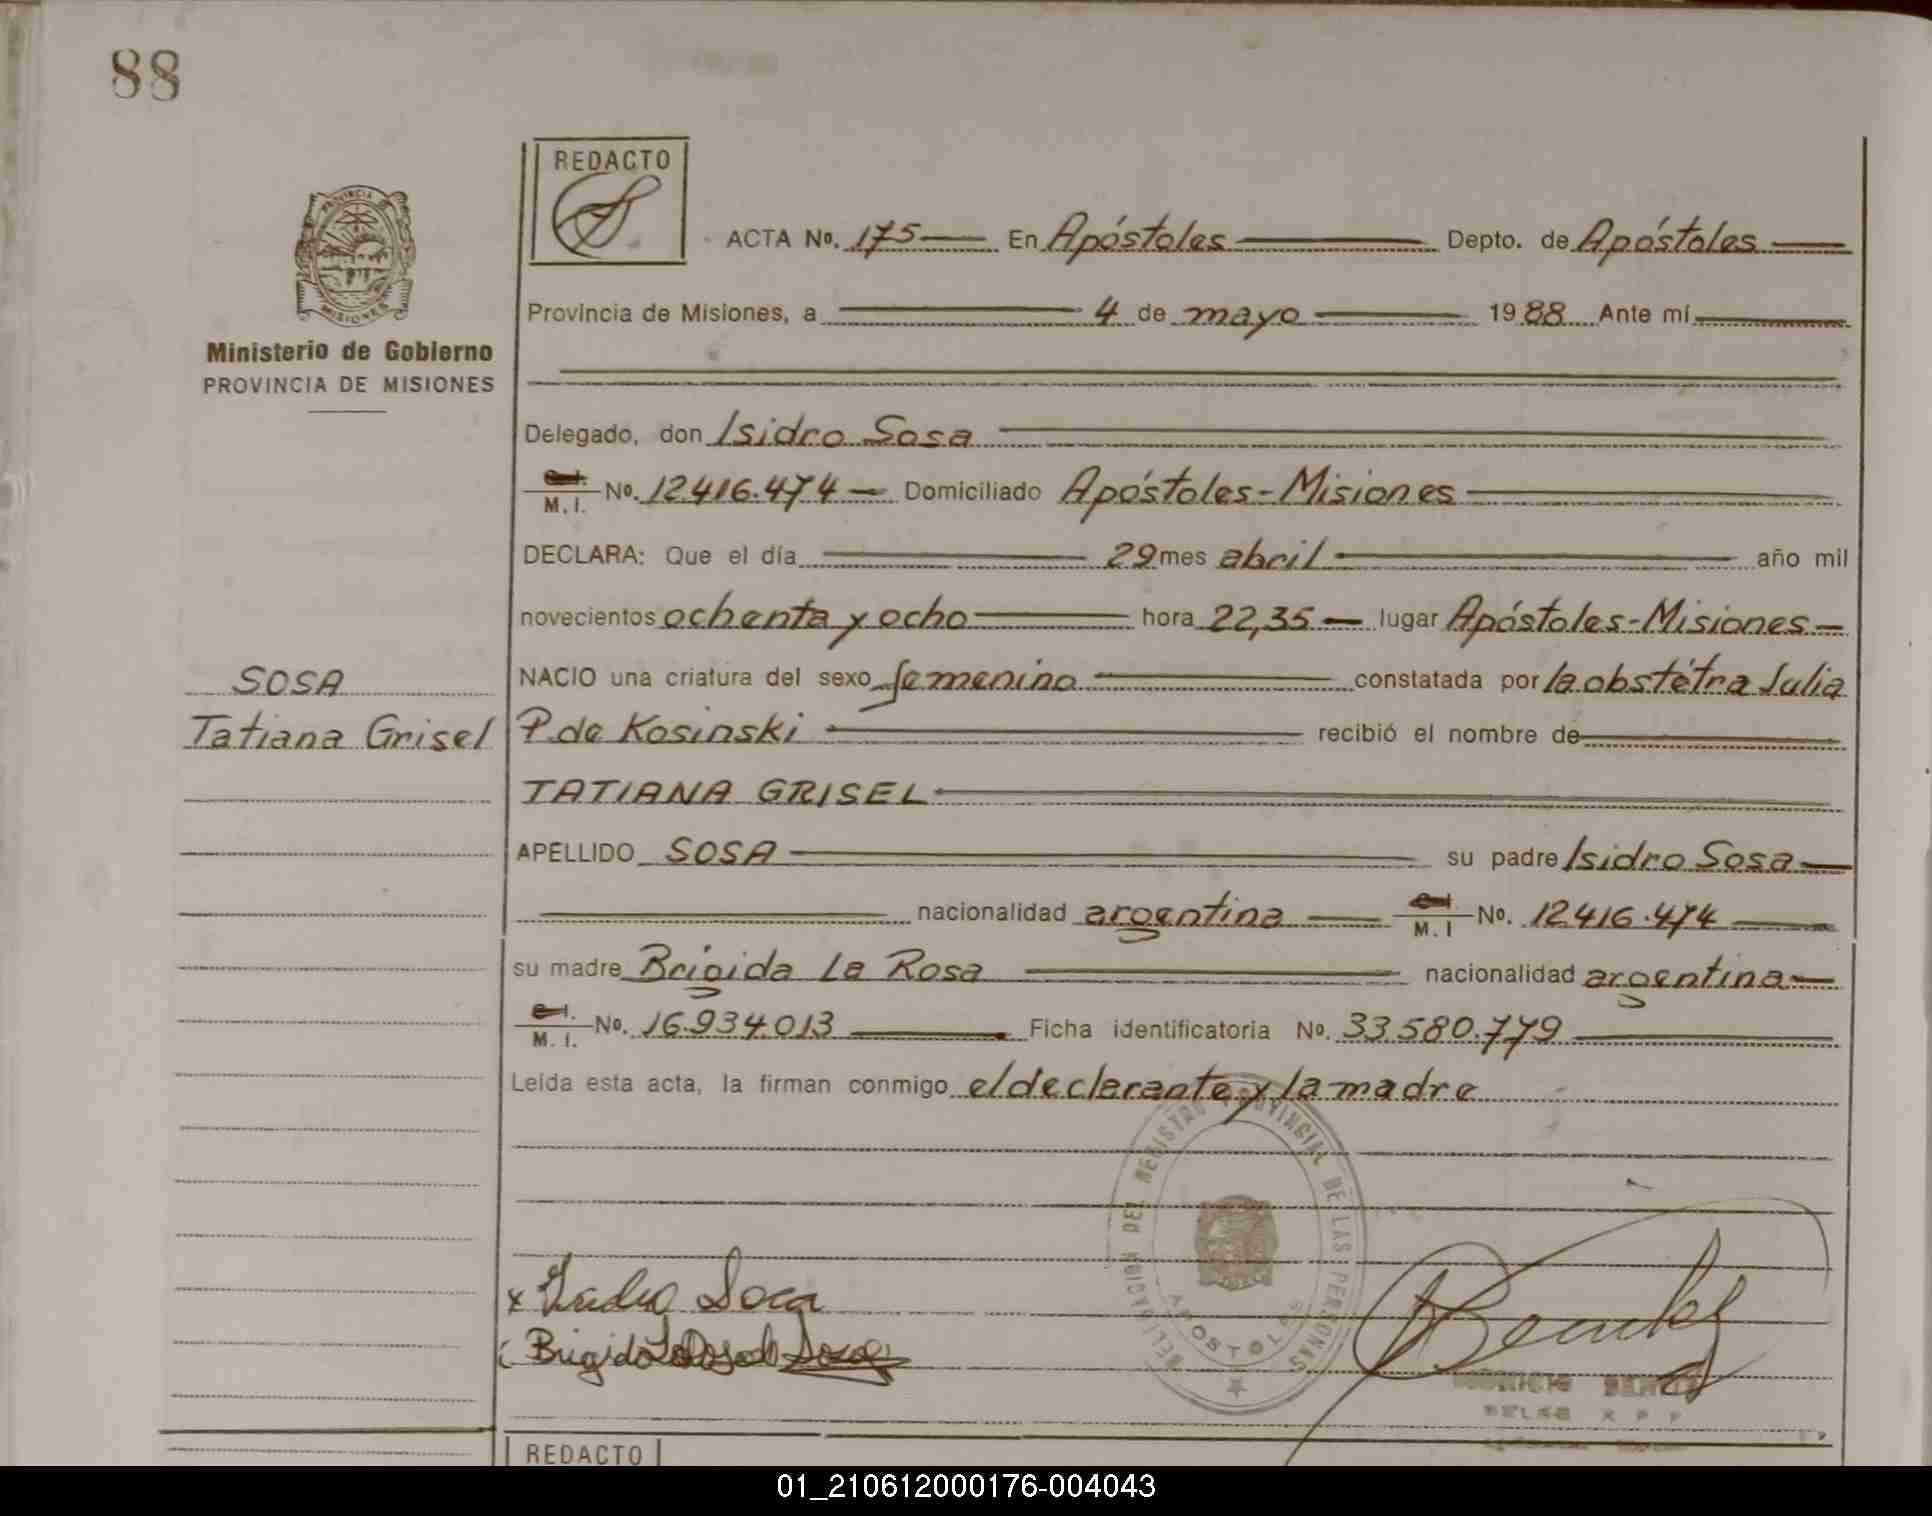 88
REDACTO
PROVINCIA DE
MISIONES
Ministerio de Gobierno
PROVINCIA DE MISIONES
ACTA No. 175 En Apóstoles Depto. de Apóstoles
Provincia de Misiones, a 4 de mayo 1988 Ante mí
Delegado, don Isidro Sosa
M. I. No. 12.416.474 Domiciliado Apóstoles-Misiones
DECLARA: Que el día 29 mes abril año mil
novecientos ochenta y ocho hora 22,35 lugar Apóstoles-Misiones
NACIO una criatura del sexo femenino constatada por la obstétra Julia
SOSA
Tatiana Grisel
P. de Kosinski recibió el nombre de
TATIANA GRISEL
APELLIDO SOSA su padre Isidro Sosa
nacionalidad argentina M. I No. 12.416.474
su madre Brigida La Rosa nacionalidad argentina
M. I. No. 16.934.013 Ficha identificatoria No. 33.580.779
Leída esta acta, la firman conmigo el declarante y la madre
DELEGACION DEL REGISTRO PROVINCIAL DE LAS PERSONAS
APOSTOLES
Isidro Sosa
Brigida
REDACTO
01_210612000176-004043